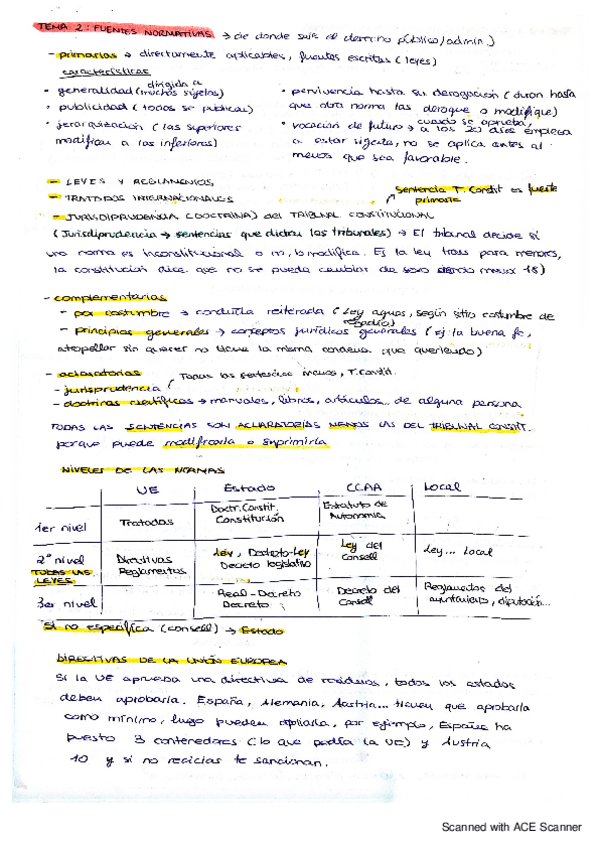 TEMA 2: FUENTES NORMATIVAS → de donde sale el derecho público/admin.)
- primarias → directamente aplicables, fuentes escritas (leyes)
características
• generalidad (dirigida a muchos sujetos)
• publicidad (todos se publican)
• jerarquización (las superiores
modifican a las inferiores)
• pervivencia hasta su derogación (duran hasta
que otra norma las derogue o modifique)
• vocación de futuro → cuando se aprueba, a los 20 días empieza
a estar vigente, no se aplica antes al
menos que sea favorable.
- LEYES Y REGLAMENTOS
- TRATADOS INTERNACIONALES
Sentencia T. Constit es fuente
primaria
- JURISDIPRUDENCIA (DOCTRINA) del TRIBUNAL CONSTITUCIONAL
(Jurisdiprudencia → sentencias que dictan los tribunales) → El tribunal decide si
una norma es inconstitucional o no, lo modifica. Ej la ley trans para menores,
la constitución dice que no se puede cambiar de sexo siendo menor 18)
- complementarias
- por costumbre → conducta reiterada (Ley aguas, según sitio costumbre de
regadío)
- principios generales → conceptos jurídicos generales (ej: la buena fe,
atropellar sin querer no tiene la misma condena que queriendo)
- aclaratorias
Todas las sentencias menos, T. Constit.
- jurisprudencia
- doctrinas científicas → manuales, libros, artículos... de alguna persona
TODAS LAS SENTENCIAS SON ACLARATORIAS MENOS LAS DEL TRIBUNAL CONSTIT.
porque puede modificarla o suprimirla
NIVELES DE LAS NORMAS
UE Estado CCAA Local
1er nivel Tratados Doctr. Constit. Constitución Estatuto de Autonomía
2º nivel TODAS LAS LEYES Directivas Reglamentos Ley, Decreto-Ley Decreto legislativo Ley del Consell Ley... Local
3er nivel Real-Decreto Decreto Decreto del Consell Reglamentos del ayuntamiento, diputación...
Si no especifica (consell) → Estado
DIRECTIVAS DE LA UNIÓN EUROPEA
Si la UE aprueba una directiva de residuos, todos los estados
deben aprobarla. España, Alemania, Austria... tienen que aprobarla
como mínimo, luego pueden ampliarla, por ejemplo, España ha
puesto 3 contenedores (lo que pedía la UE) y Austria
10 y si no reciclas te sancionan.
Scanned with ACE Scanner